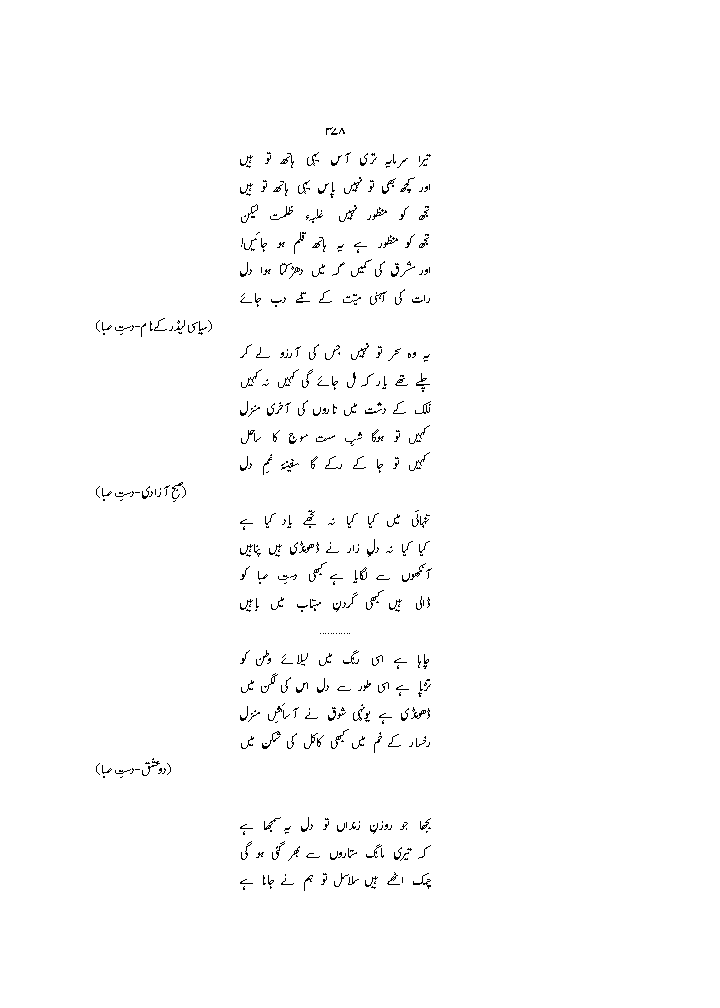 ۳۷۸
تیرا سرمایہ تری آس یہی ہاتھ تو ہیں
اور کچھ بھی تو نہیں پاس یہی ہاتھ تو ہیں
تجھ کو منظور نہیں غلبہء ظلمت لیکن
تجھ کو منظور ہے یہ ہاتھ قلم ہو جائیں!
اور مشرق کی کمیں گہ میں دھڑکتا ہوا دل
رات کی آہنی میّت کے تلے دب جائے
(سیاسی لیڈر کے نام-دستِ صبا)
یہ وہ سحر تو نہیں جس کی آرزو لے کر
چلے تھے یار کہ مل جائے گی کہیں نہ کہیں
فلک کے دشت میں تاروں کی آخری منزل
کہیں تو ہوگا شبِ سست موج کا ساحل
کہیں تو جا کے رکے گا سفینۂ غمِ دل
(صبحِ آزادی-دستِ صبا)
تنہائی میں کیا کیا نہ تجھے یاد کیا ہے
کیا کیا نہ دلِ زار نے ڈھونڈی ہیں پناہیں
آنکھوں سے لگایا ہے کبھی دستِ صبا کو
ڈالی ہیں کبھی گردنِ مہتاب میں باہیں
............
چاہا ہے اسی رنگ میں لیلائے وطن کو
تڑپا ہے اسی طور سے دل اس کی لگن میں
ڈھونڈی ہے یونہی شوق نے آسائشِ منزل
رخسار کے خم میں کبھی کاکل کی شکن میں
(دو عشق-دستِ صبا)
بجھا جو روزنِ زنداں تو دل یہ سمجھا ہے
کہ تیری مانگ ستاروں سے بھر گئی ہو گی
چمک اٹھے ہیں سلاسل تو ہم نے جانا ہے